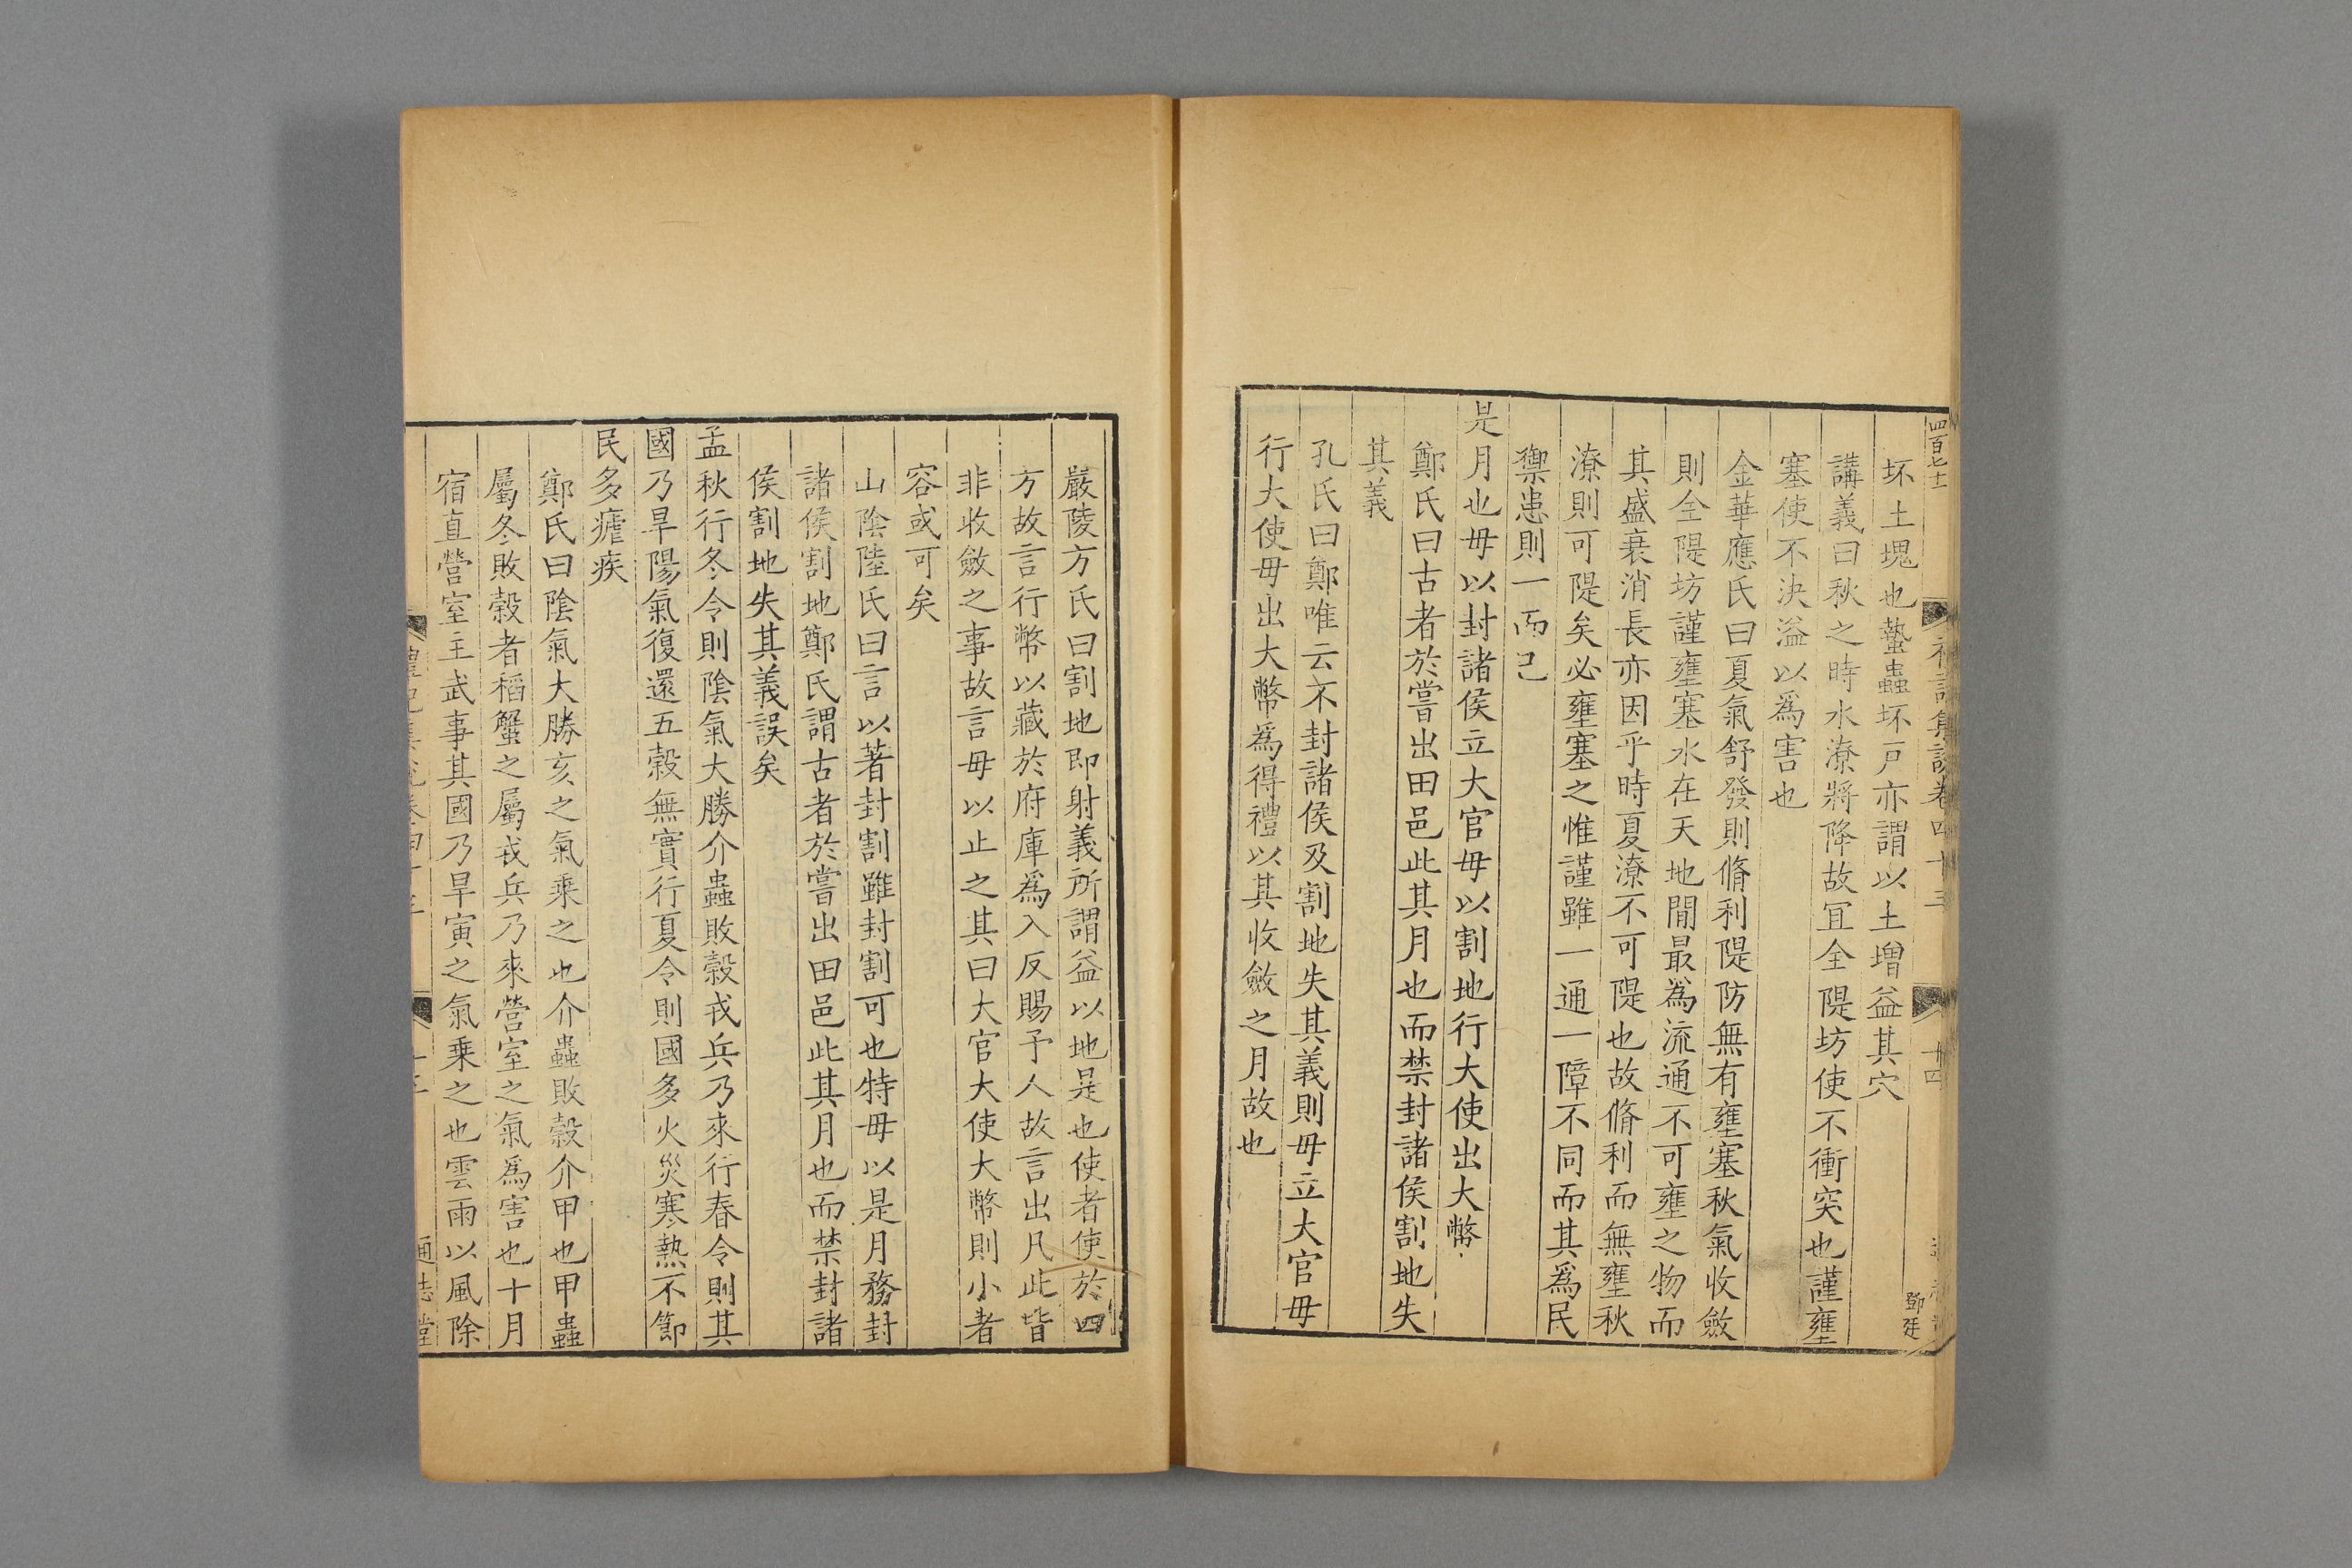 四百七十二
禮記集說卷四十三
十四
鄧廷
坏土塊也蟄蟲坏戸亦謂以土增益其穴
講義曰秋之時水潦將降故冝全隄坊使不衝突也謹壅
塞使不決溢以爲害也
金華應氏曰夏氣舒發則脩利隄防無有壅塞秋氣收斂
則全隄坊謹壅塞水在天地閒最爲流通不可壅之物而
其盛衰消長亦因乎時夏潦不可隄也故脩利而無壅秋
潦則可隄矣必壅塞之惟謹雖一通一障不同而其爲民
禦患則一而已
是月也毋以封諸侯立大官毋以割地行大使出大幣
鄭氏曰古者於嘗出田邑此其月也而禁封諸侯割地失
其義
孔氏曰鄭唯云不封諸侯及割地失其義則毋立大官毋
行大使毋出大幣爲得禮以其收斂之月故也
嚴陵方氏曰割地即射義所謂益以地是也使者使於四
方故言行幣以藏於府庫爲入反賜予人故言出凡此皆
非收斂之事故言毋以止之其曰大官大使大幣則小者
容或可矣
山陰陸氏曰言以著封割雖封割可也特毋以是月務封
諸侯割地鄭氏謂古者於嘗出田邑此其月也而禁封諸
侯割地失其義誤矣
孟秋行冬令則陰氣大勝介蟲敗穀戎兵乃來行春令則其
國乃旱陽氣復還五穀無實行夏令則國多火災寒熱不節
民多瘧疾
鄭氏曰陰氣大勝亥之氣乘之也介蟲敗穀介甲也甲蟲
屬冬敗穀者稻蟹之屬戎兵乃來營室之氣爲害也十月
宿直營室主武事其國乃旱寅之氣乘之也雲雨以風除
禮記集說卷四十三
通志堂